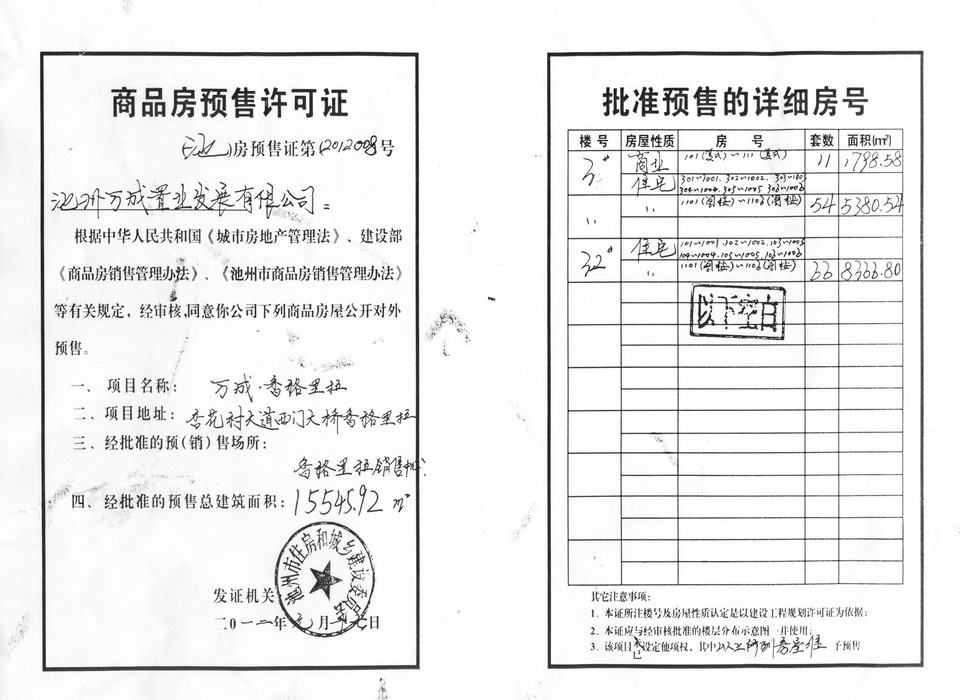 商品房预售许可证
(池)房预售证第(2012008号
池州万成置业发展有限公司:
根据中华人民共和国《城市房地产管理法》、建设部
《商品房销售管理办法》、《池州市商品房销售管理办法》
等有关规定,经审核,同意你公司下列商品房屋公开对外
预售。
一、项目名称: 万成·香格里拉
二、项目地址: 杏花村大道西门大桥香格里拉
三、经批准的预(销)售场所:
香格里拉销售中心
四、经批准的预售总建筑面积: 15545.92 m²
池州市住房和城乡建设委员会
发证机关:
二0一二年元月十七日
批准预售的详细房号
楼号 房屋性质 房号 套数 面积(m²)
3# 商业 101(复式)~111(复式) 11 1798.58
住宅 301~1001、302~1002、303~1003
304~1004、305~1005 306~1006
〃 〃 1101(阁楼)~1106(阁楼) 54 5380.54
32# 住宅 101~1001、102~1002、103~1003
104~1004、105~1005、106~1006
〃 1101(阁楼)~1106(阁楼) 66 8366.80
以下空白
其它注意事项:
1、本证所注楼号及房屋性质认定是以建设工程规划许可证为依据;
2、本证应与经审核批准的楼层分布示意图一并使用;
3、该项目未已设定他项权,其中以上所列房屋准予预售